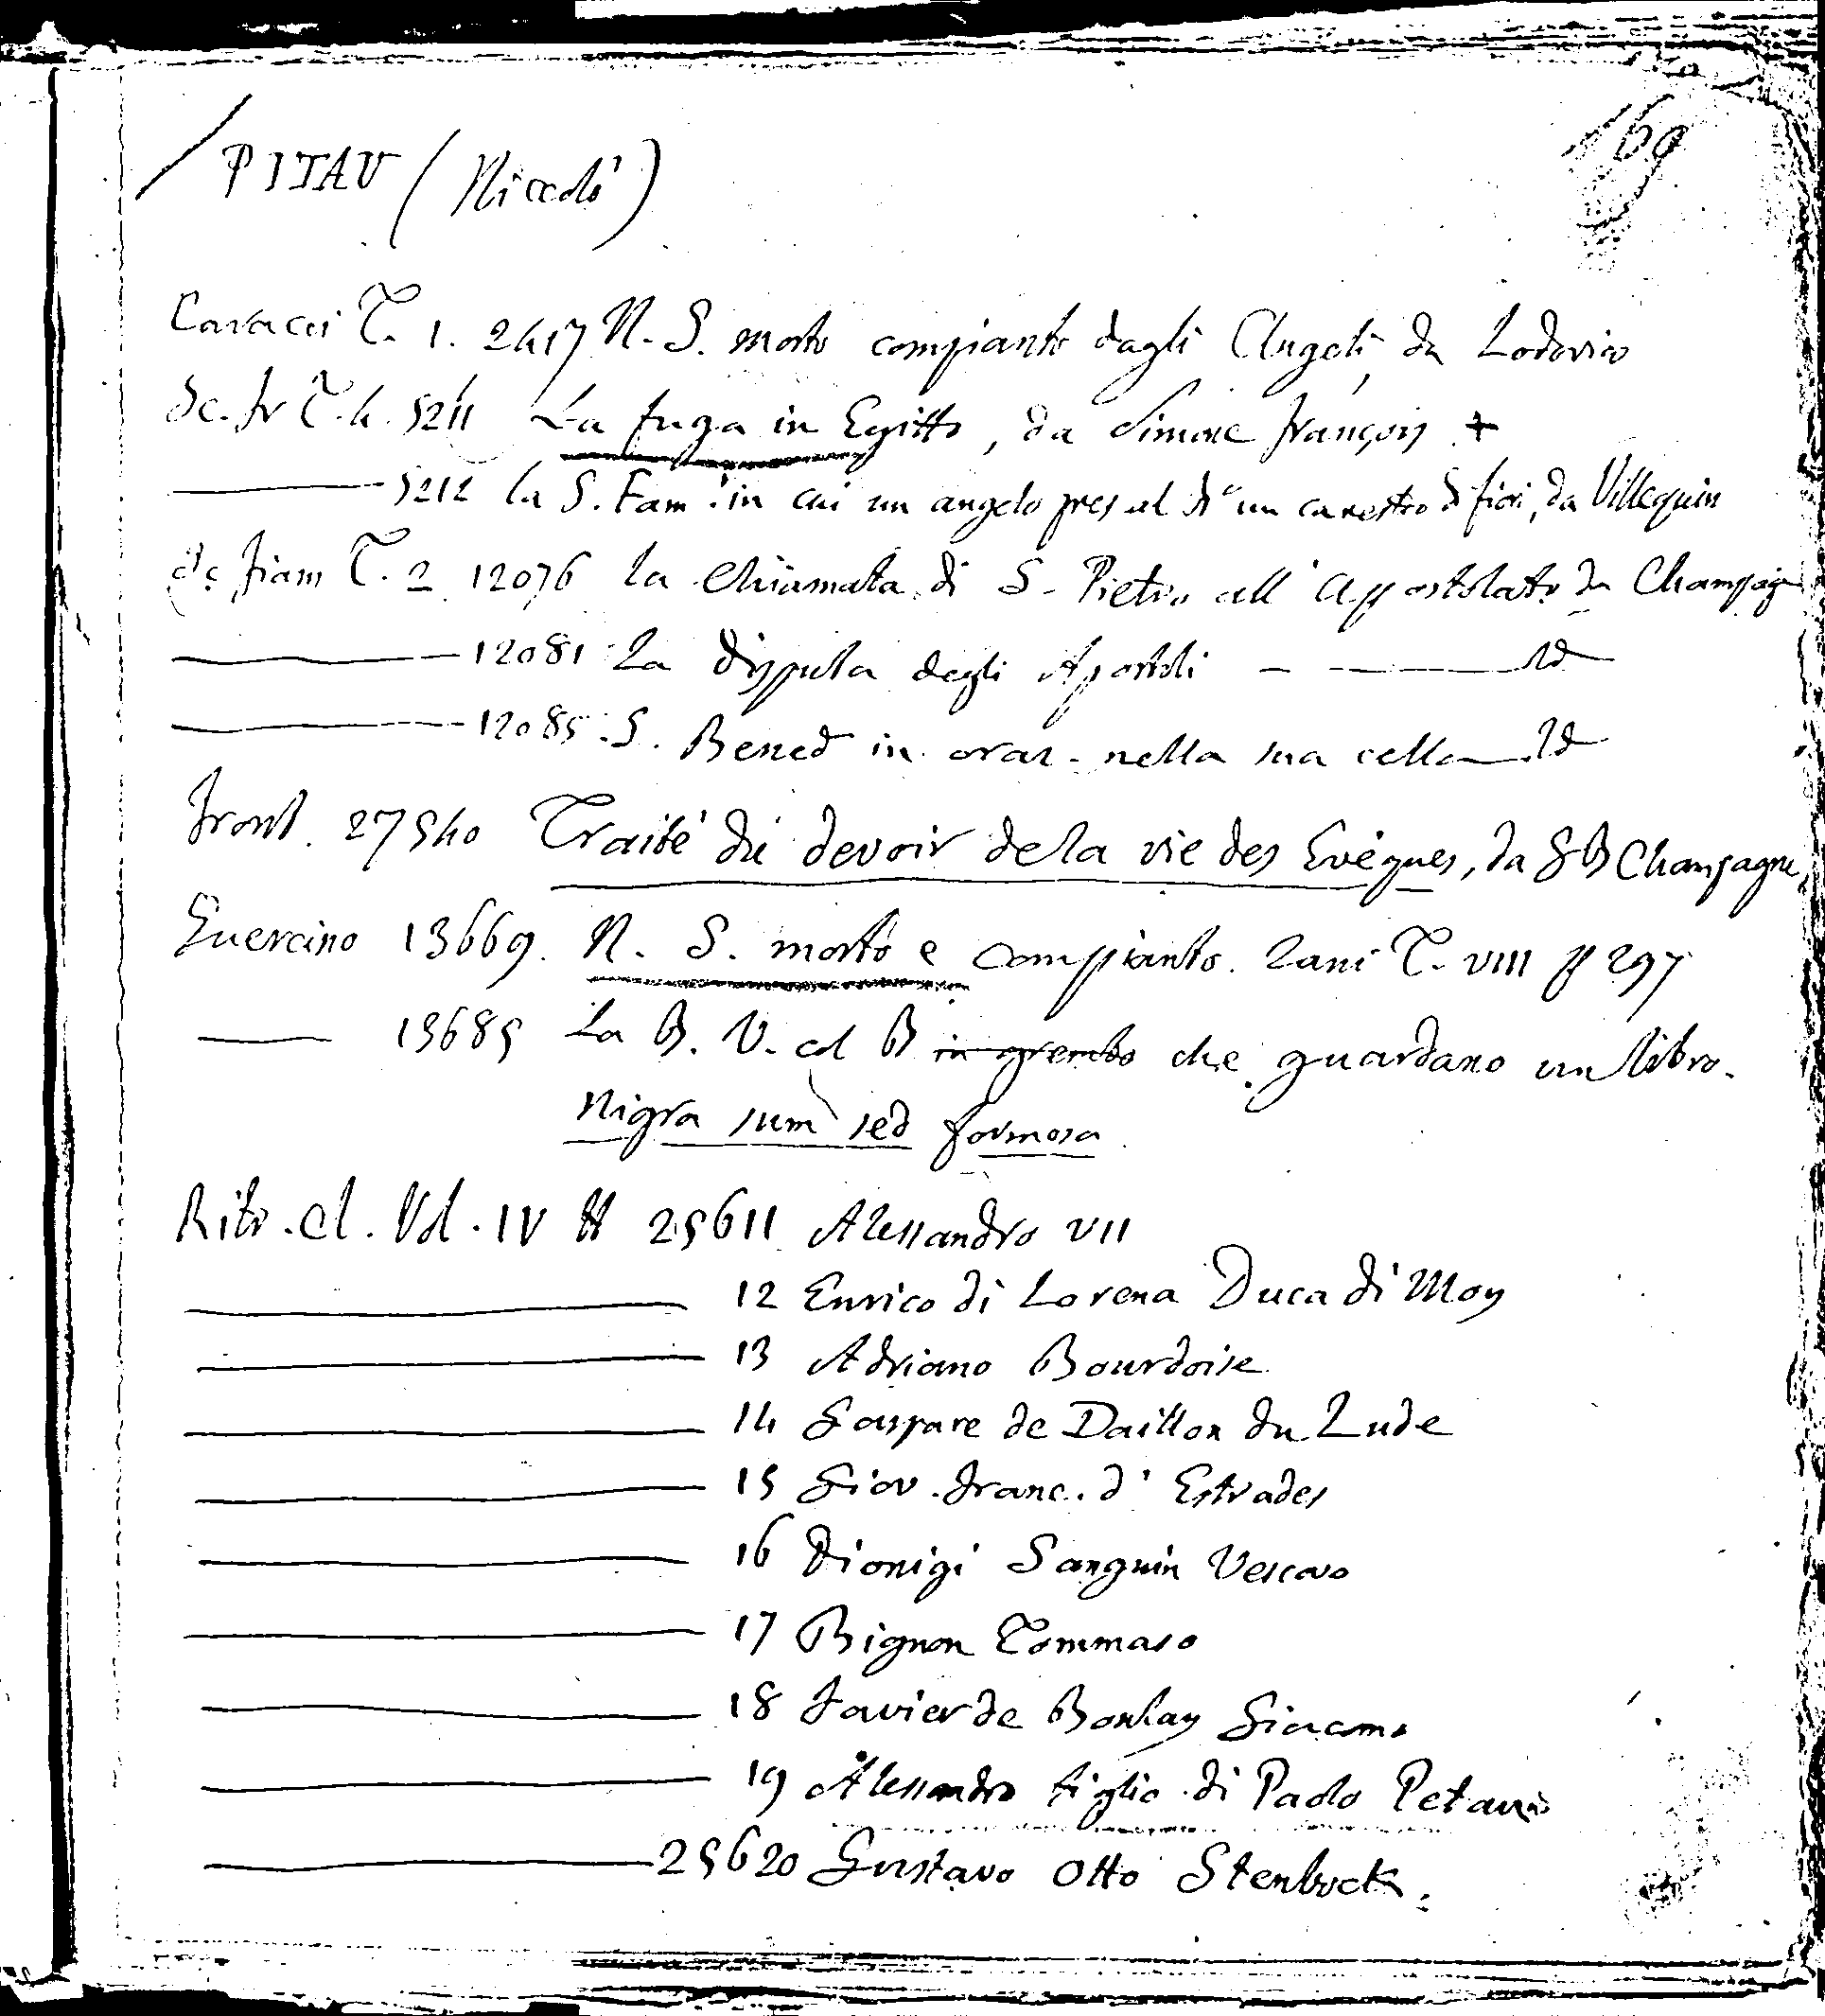 169
/ PITAU (Niccolò)
Caracci T. 1. 2417 N. S. morto compianto dagli Angeli, da Lodovico
Sc. fr T. 4. 5211 La fuga in Egitto, da Simone françois +
5212 la S. Fam. in cui un angelo pres al di un canestro di fiori, da Villequin
Sc fiam T. 2 12076 la Chiamata di S. Pietro all' Apostolato da Champag
12081 La disputa degli Apostoli Id
12085. S. Bened in oraz. nella sua cella Id
front. 27540 Traité du devoir de la vie des Evéques, da G B Champagne,
Guercino 13669. N. S. morto e compianto. Zani T. VIII p 297
13685 La B. V. col B in grembo che guardano un libro.
Nigra sum sed formosa
Ritr. cl. Vol. IV 25611 Alessandro VII
12 Enrico di Lorena Duca di Moy
13 Adriano Bourdoise
14 Gaspare de Daillon du Lude
15 Giov. franc. d' Estrades
16 Dionigi Sanguin Vescovo
17 Bignon Tommaso
18 Favier de Boulay Giacomo
19 Alessandro figlio di Paolo Petavio
25620 Gustavo Otto Stenbock.